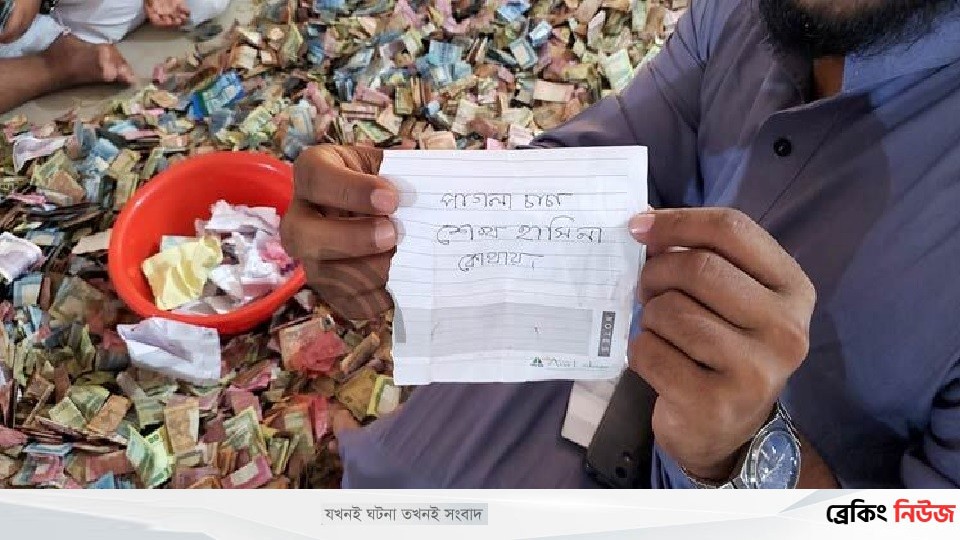 পাগলা চাচা
শেখ হাসিনা
কোথায়।
NOTES
যখনই ঘটনা তখনই সংবাদ
ব্রেকিং নিউজ